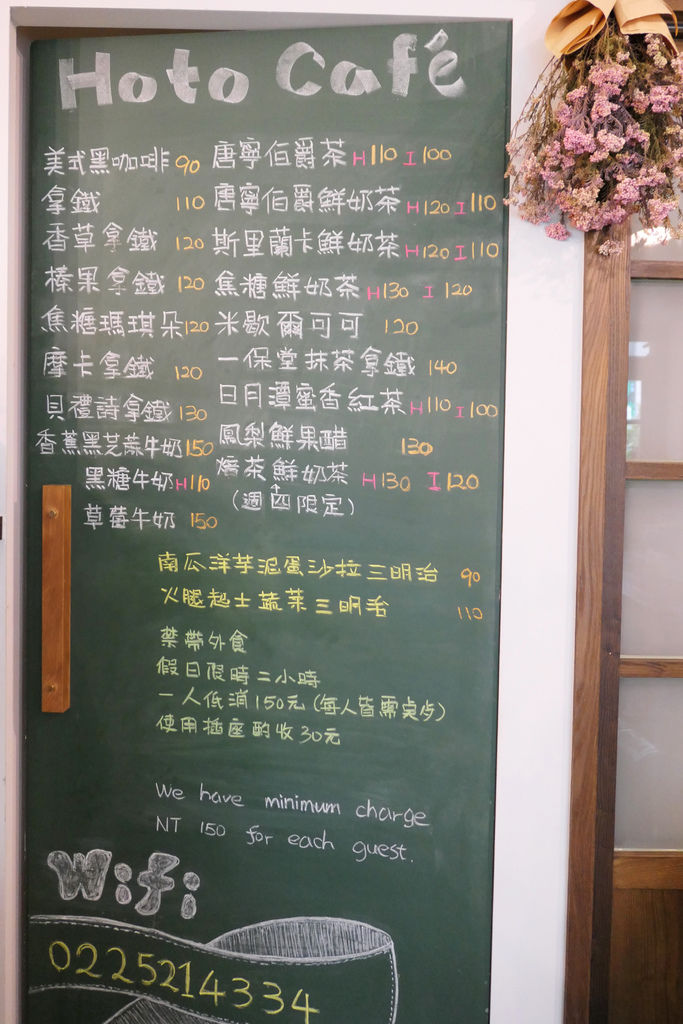 Hoto Café
美式黑咖啡 90
拿鐵 110
香草拿鐵 120
榛果拿鐵 120
焦糖瑪琪朵 120
摩卡拿鐵 120
貝禮詩拿鐵 130
香蕉黑芝蔴牛奶 150
黑糖牛奶 H110
草莓牛奶 150
唐寧伯爵茶 H110 I100
唐寧伯爵鮮奶茶 H120 I110
斯里蘭卡鮮奶茶 H120 I110
焦糖鮮奶茶 H130 I120
米歇爾可可 120
一保堂抹茶拿鐵 140
日月潭蜜香紅茶 H110 I100
鳳梨鮮果醋 130
焙茶鮮奶茶 H130 I120
(週四限定)
南瓜洋芋泥蛋沙拉三明治 90
火腿起士蔬菜三明治 110
禁帶外食
假日限時二小時
一人低消150元(每人皆需桌步)
使用插座酌收30元
We have minimum charge
NT 150 for each guest.
Wifi
0225214334